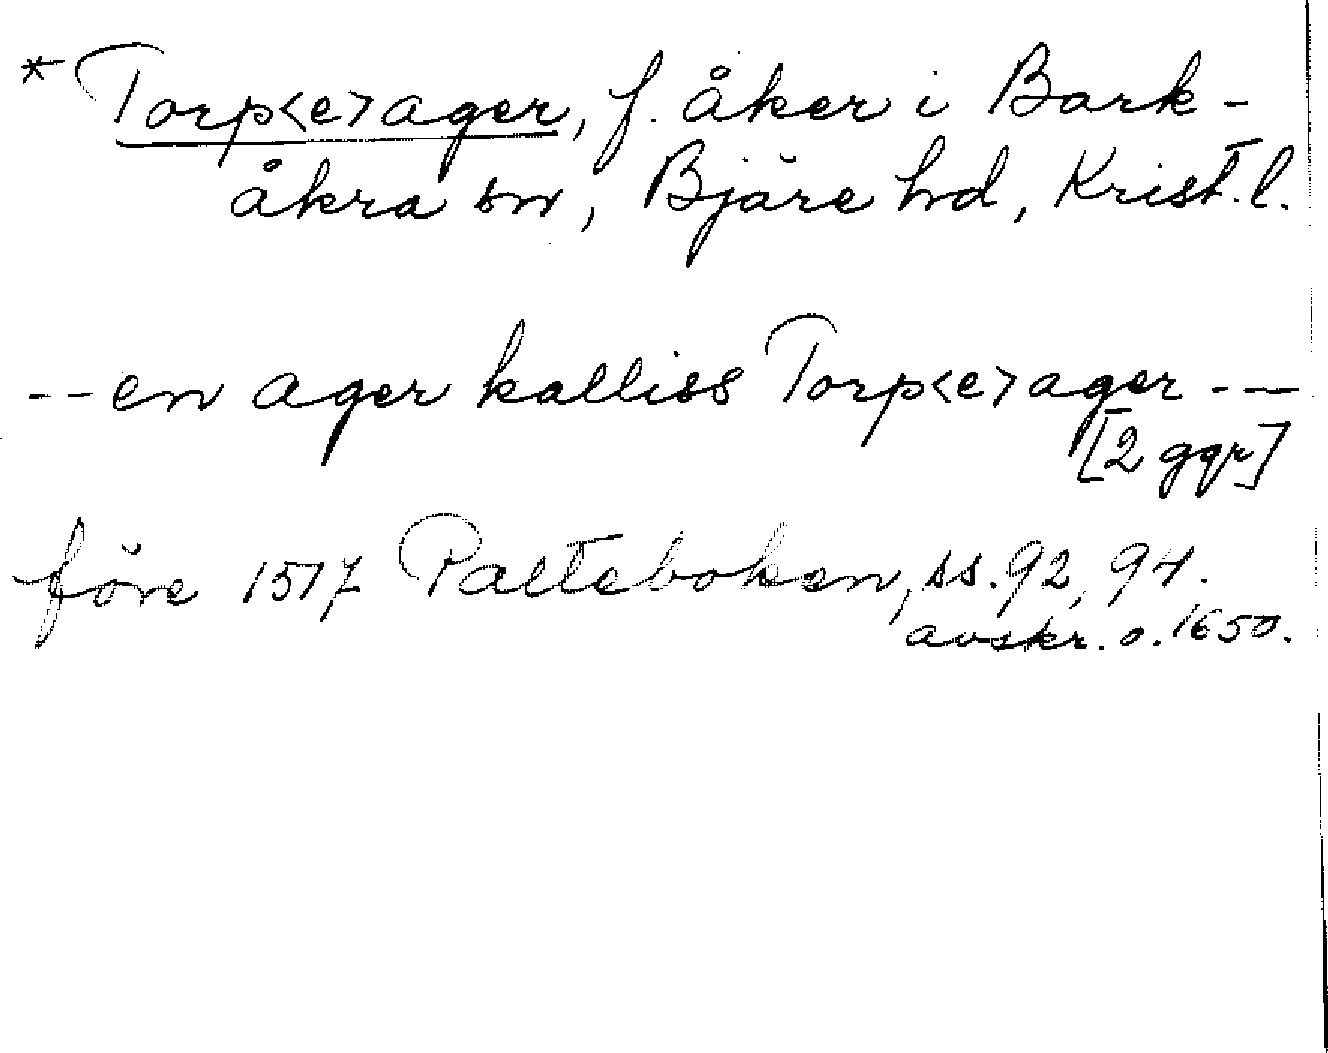 * Torp<e>ager, f. åker i Bark-
åkra sn, Bjäre hd, Krist. l.
-- en ager kalliss Torp<e>ager ---
[2 ggr]
före 1517 Palteboken, ss. 92, 94.
avskr. o. 1650.